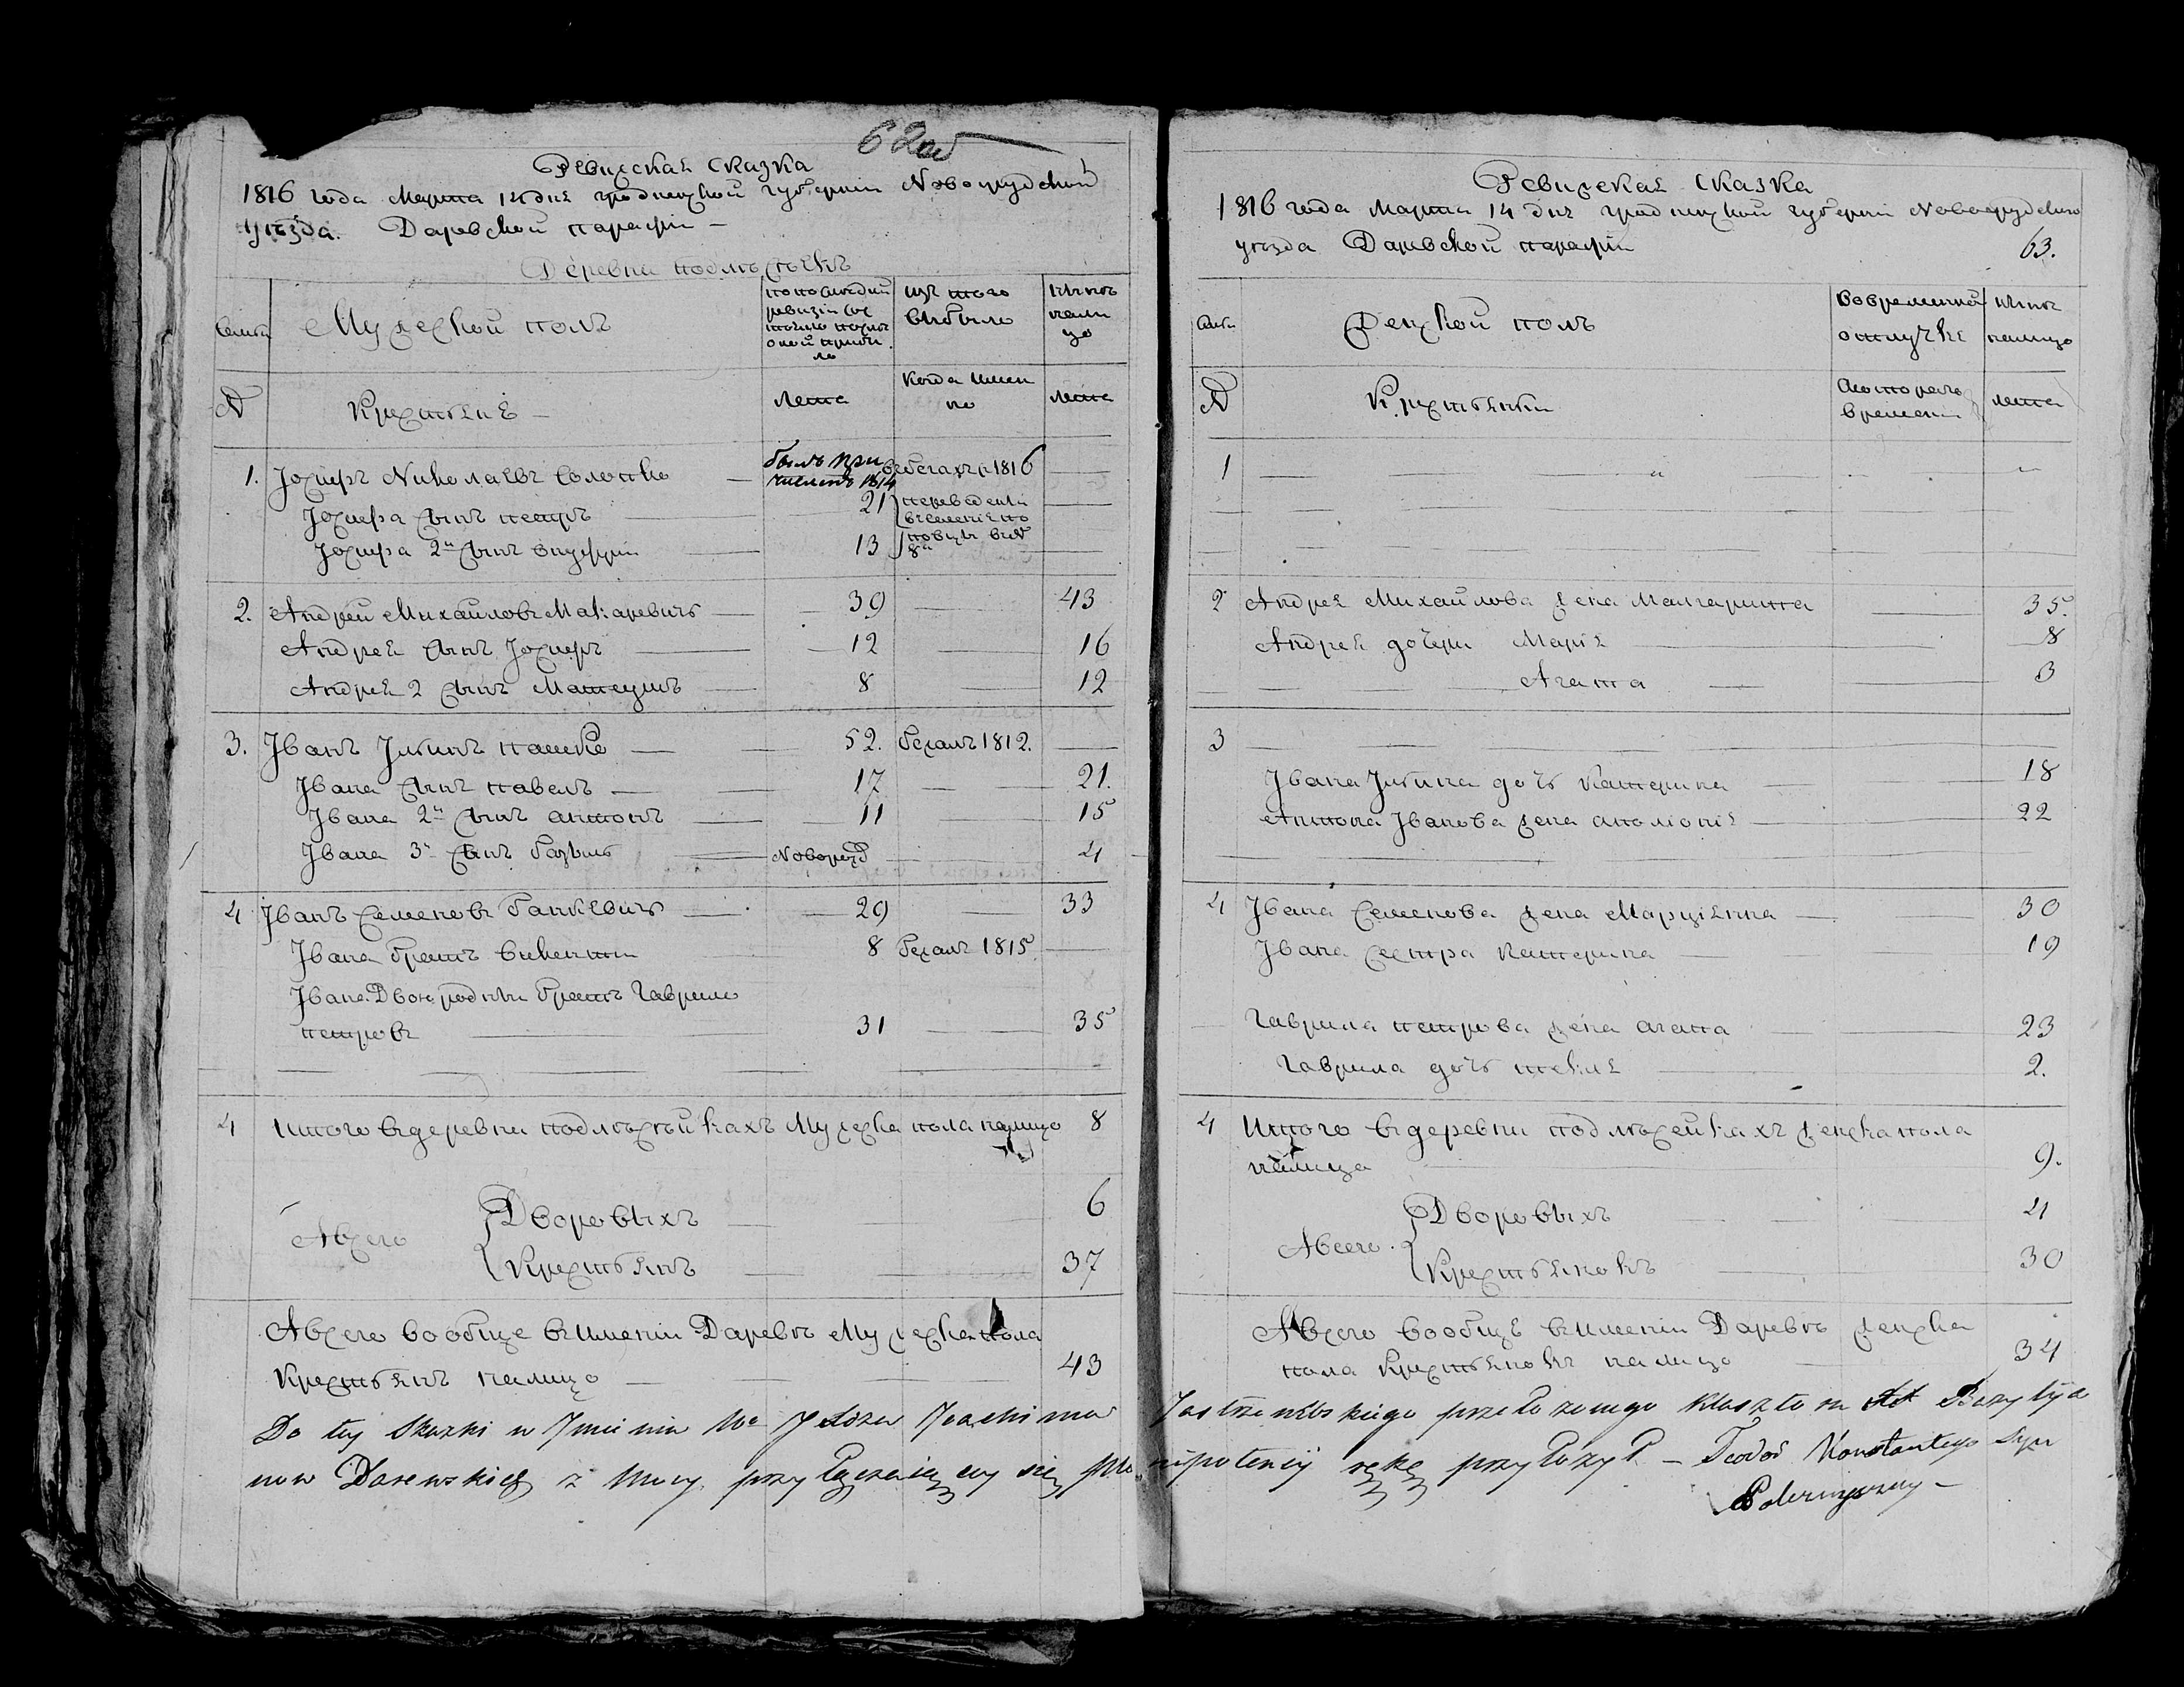 62об
Ревизская Сказка
1816 года Марта 14 дня гродненской губернии Новогрудской
уѣзда. Даревской парафіи
Деревня подлѣсейкъ
Семьи
Мужеской полъ
по последней ревизіи состояло и после оной прибыло
изъ того выбыло
нынѣ на лицо
№
Крестьяне
лета
когда именно
лета
1. Іозефъ Николаевъ Солошко — былъ причисленъ 1814 въ бегахъ с 1816 —
Іозефа сынъ петръ — 21 переведены в имение
Іозефа 2й сынъ онуфрій — 13
2. Андрей Михайловъ Макаревичъ — 39 — 43
Андрея сынъ Іозефъ — 12 — 16
Андрея 2 сынъ Матеушъ — 8 — 12
3. Іванъ Ильинъ пашко — 52. бежалъ 1812. —
Івана сынъ павелъ — 17 — 21.
Івана 2й сынъ антонъ — 11 — 15
Івана 3й сынъ базыль — Новорожд — 4
4 Іванъ Семеновъ банкевичъ — 29 — 33
Івана братъ викентій 8 бежалъ 1815 —
Івана Двоюродный братъ гаврило
петровъ — 31 — 35
4 Итого в деревни подлѣсейкахъ Мужеска пола налицо 8
Авсего
Дворовыхъ — 6
Крестьянъ — 37
Авсего вообще в имении Даревѣ Мужеска пола
Крестьянъ налицо — 43
Ревизская Сказка
1816 года Марта 14 дня гродненской губернии Новогрудского
уѣзда Даревской парафіи
63.
Семьи
Женской полъ
Во временной отлучке
нынѣ налицо
№
Крестьянки
с которого времени
лета
1 — — —
2 Андрея Михайлова жена Маргарита — 35.
Андрея дочери Марія — 8
— Агата — 3
3
Івана Ильина дочь Катерина — 18
Антона Іванова жена аполіонія — 22
4 Івана Семенова жена Марціянна — 30
Івана сестра Катерина — 19
гаврила петрова жена агата — 23
гаврила дочь текля — 2.
4 Итого в деревни подлѣсейкахъ женска пола
налицо — 9.
Авсего.
Дворовыхъ — 4
Крестьянокъ — 30
Авсего вообще в имении Даревѣ женска
пола Крестьянокъ налицо — 34
Do tey Skazki w Jmieniu Wo Xiedza Joachima Jastrzembskiego przełozonego Klasztoru XX Bazylia
now Darewskich z Mocy przyłączaiącey się plenipotencij rękę przyłożył — Teodor Konstantego Syn